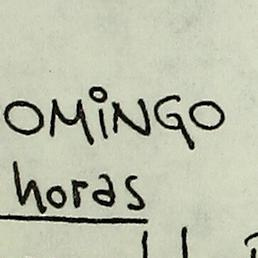 OMiNGO
horas